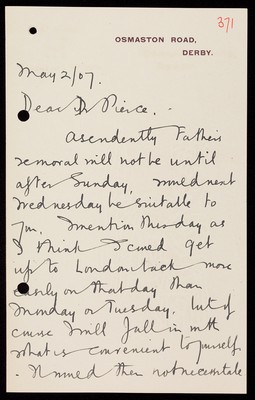 371
OSMASTON ROAD,
DERBY.
May 2/07.
Dear Dr Pierce, -
As evidently Father's
removal will not be until
after Sunday, would next
Wednesday be suitable to
you. I mention this day as
I think I could get
up to London & back more
easily on that day than
Monday or Tuesday, but of
course I will fall in with
what is convenient to yourself
. It would then not necessitate